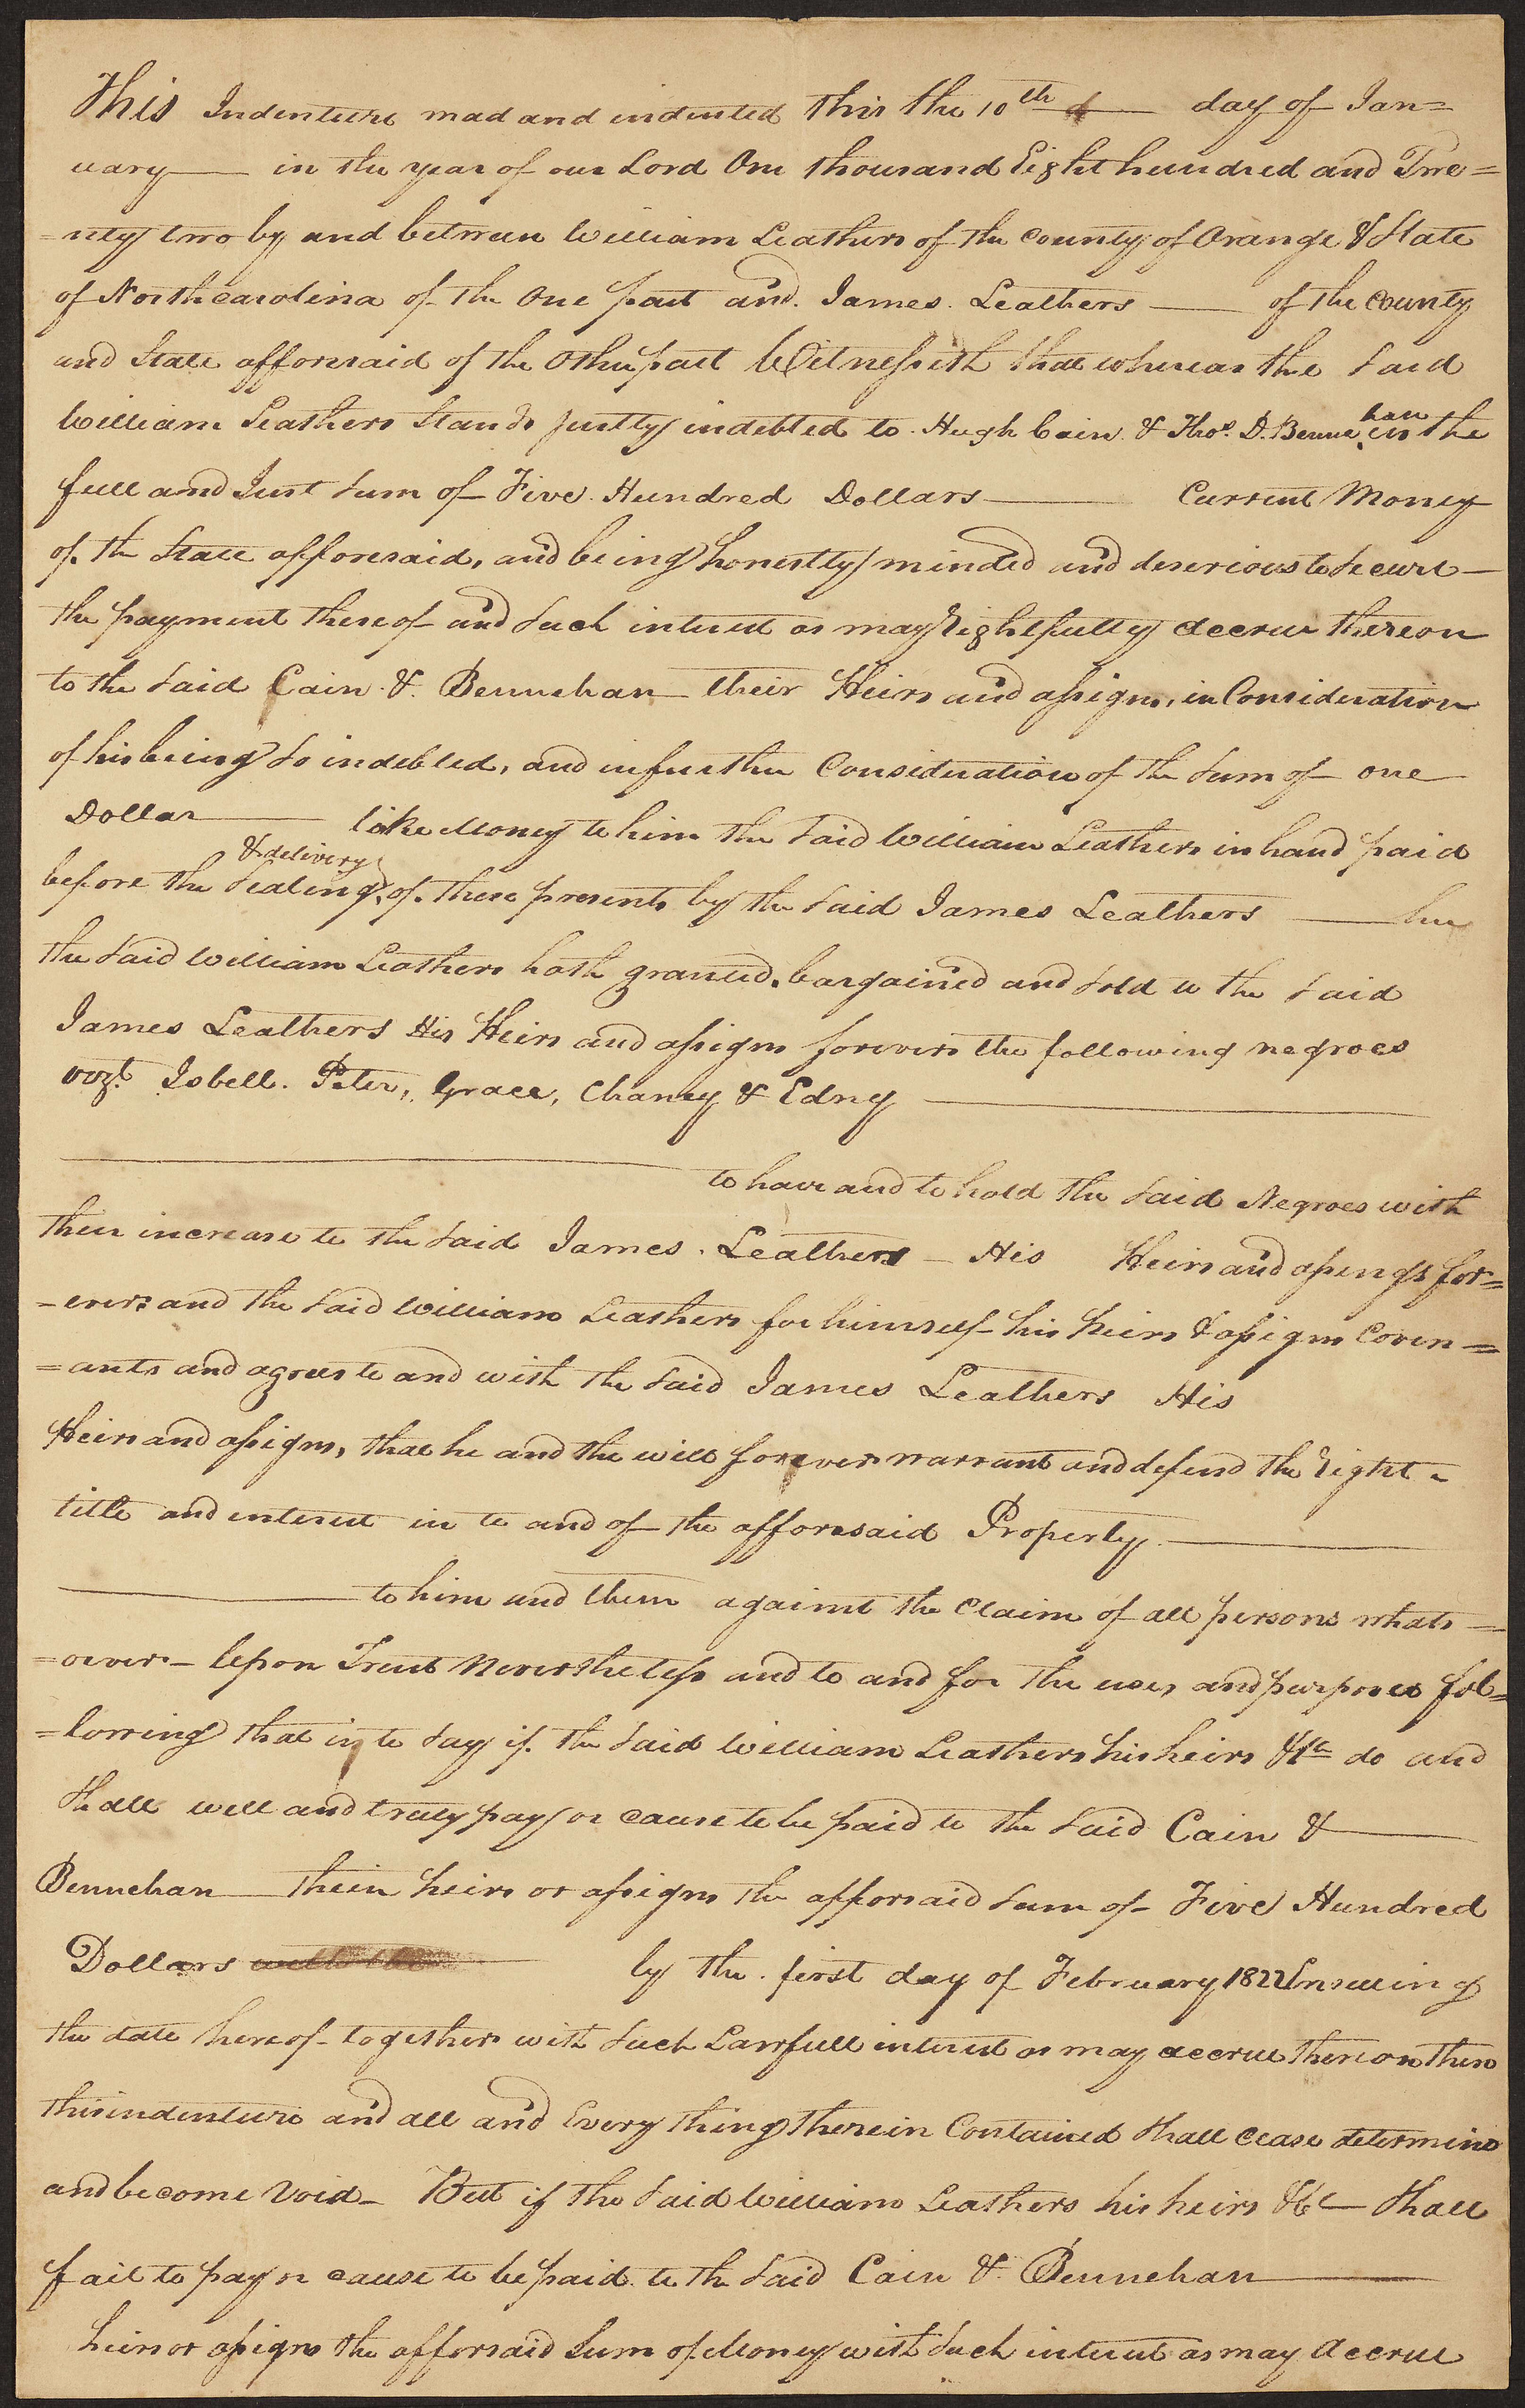 This Indenture mad and indented this the 10th day of Jan=
uary in the year of our Lord One thousand Eight hundred and Twe=
=nty two by and between William Leathers of the County of Orange & State
of North carolina of the One part and. James. Leathers of the County
and State afforesaid of the Other part Witnesseth that whereas the Said
William Leathers Stands justly indebted to Hugh Cain & Thos. D. Benne han in the
full and Just Sum of Five Hundred Dollars Current Money
of the State afforesaid, and being honestly minded and deserious to Secure
the payment thereof and Such interest as may Rightfully accrue thereon
to the Said Cain & Bennehan their Heirs and assigns, in Consideration
of his being So indebted, and in further Consideration of the Sum of one
Dollar like Money to him the Said William Leathers in hand paid
before the Sealing & delivery of these presents by the Said James Leathers he
the Said William Leathers hath granted, bargained and Sold to the Said
James Leathers His Heirs and assigns forever the following negroes
vizt. Isbell. Peter, Grace, Chaney & Edny
to have and to hold the Said Negroes with
their increase to the Said James. Leathers His Heirs and assings for=
-ever: and the Said William Leathers for himself his Heirs & assigns Coven=
=ants and agrees to and with the Said James Leathers His
Heirs and assigns, that he and the will forever warrant and defend the Right
title and interest in to and of the afforesaid Property
to him and them against the Claim of all persons whats=
=oever - Upon Trust Nevertheless and to and for the uses, and purposes fol=
=lowing that is to Say if the Said William Leathers his heirs &c do and
Shall well and truly pay or cause to be paid to the Said Cain &
Bennehan their heirs or assigns the afforsaid Sum of Five Hundred
Dollars by the first day of February 1822 Ensueing
the date hereof together with Such Lawfull interest as may accrue thereon then
this indenture and all and Every thing therein Contained Shall cease determine
and become Void - But if the Said William Leathers his heirs &c Shall
fail to pay or cause to be paid to the Said Cain & Bennehan
heirs or assigns the afforsaid Sum of Money with Such interest as may Accrue